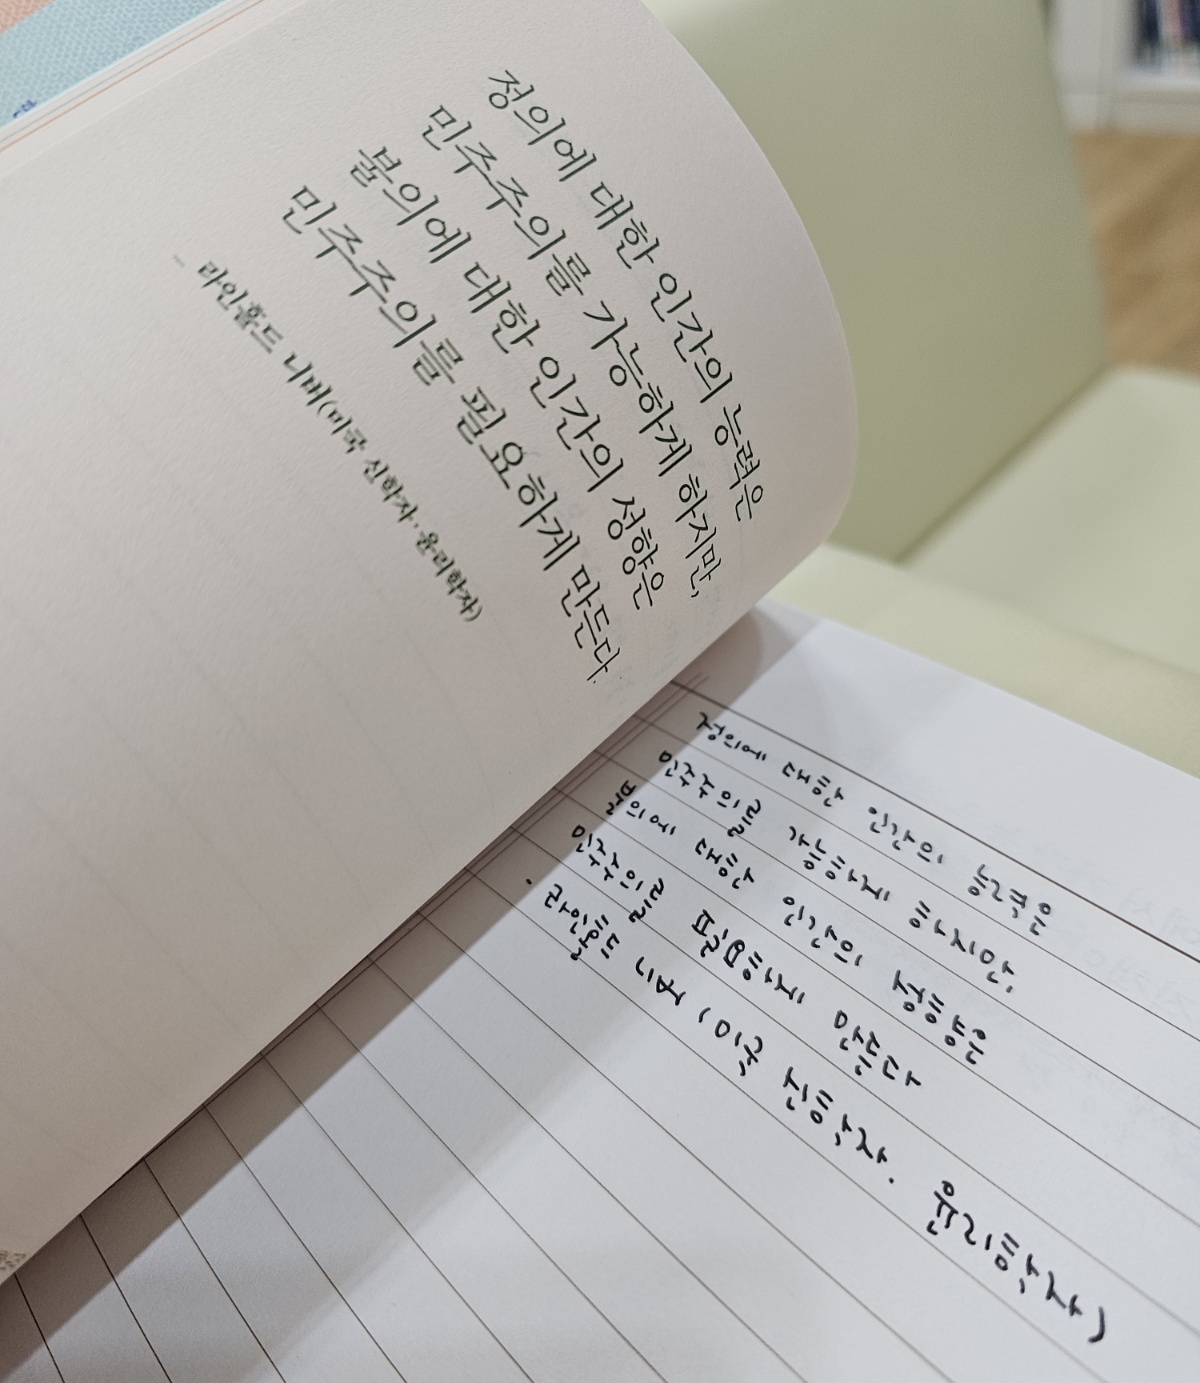 정의에 대한 인간의 능력은
민주주의를 가능하게 하지만,
불의에 대한 인간의 성향은
민주주의를 필요하게 만든다.
_ 라인홀드 니버(미국 신학자·윤리학자)
정의에 대한 인간의 능력은
민주주의를 가능하게 하지만,
불의에 대한 인간의 성향은
민주주의를 필요하게 만든다
· 라인홀드 니버 (미국 신학자. 윤리학자)